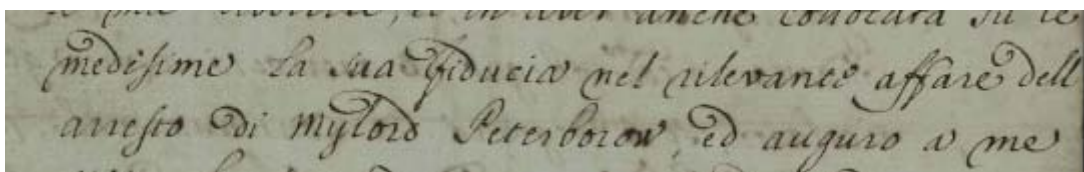 e mie [...], et in aver anche collocata su le
medesime la sua fiducia nel rilevante affare dell
arresto di Mylord Peterborow, ed auguro a me